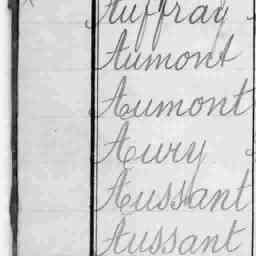 Auffray
Aumont
Aumont
Aury
Aussant
Aussant